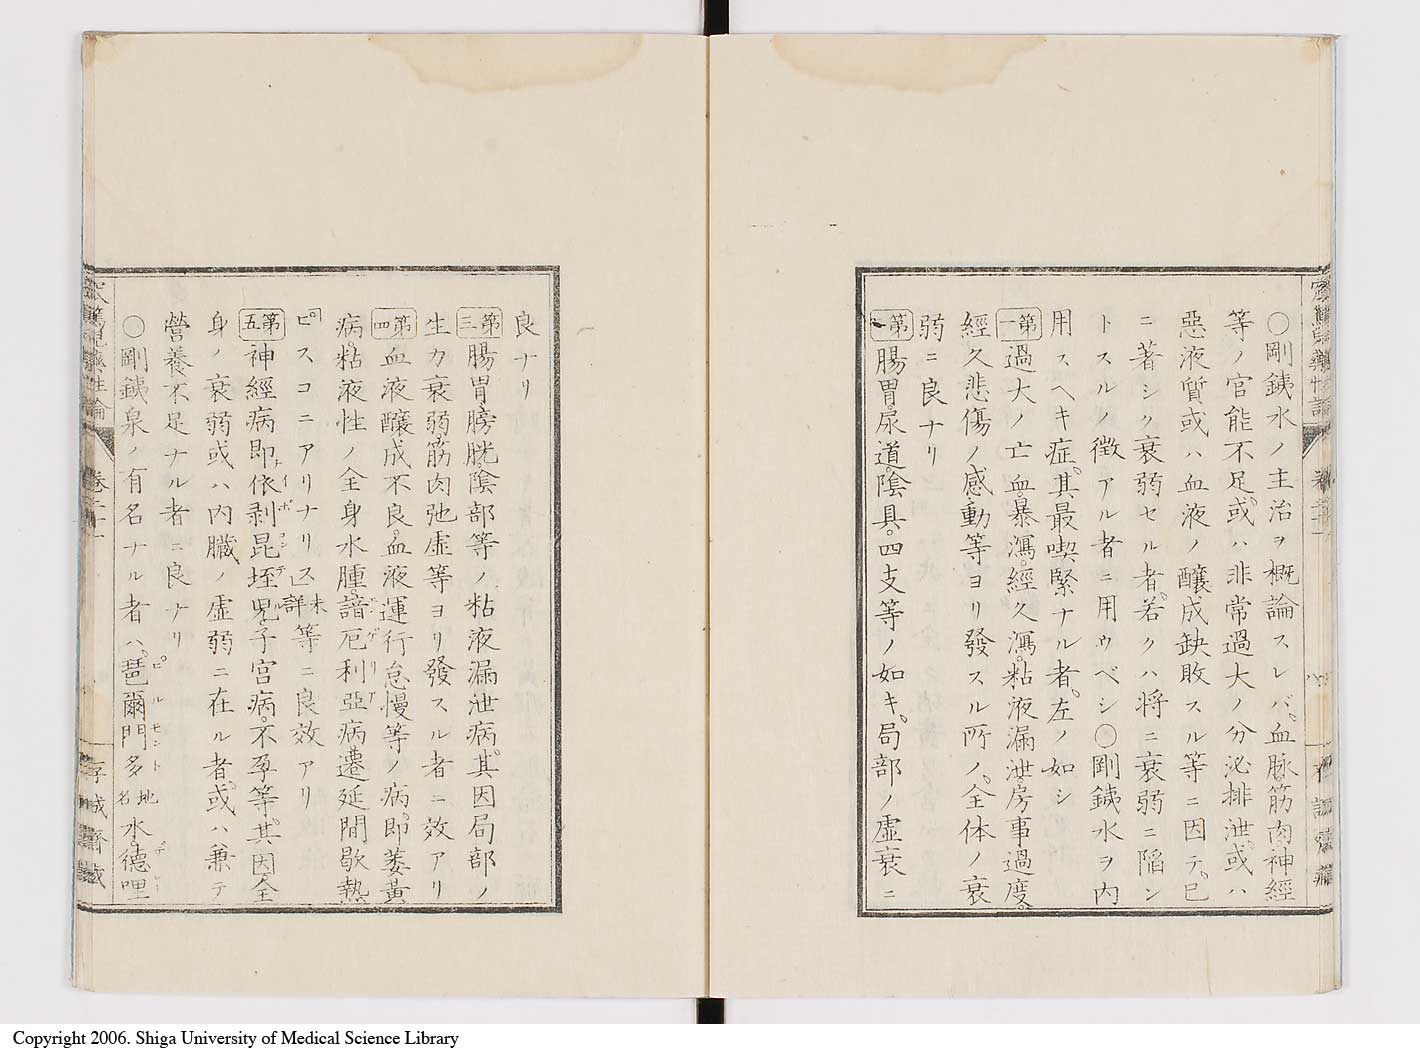 〇剛銕水ノ主治ヲ概論スレバ血脉筋肉神經
等ノ官能不足或ハ非常過大ノ分泌排泄或ハ
惡液質或ハ血液ノ釀成缺敗スル等ニ因テ已
ニ著シク衰弱セル者若クハ将ニ衰弱ニ陷ン
トスルノ徴アル者ニ用ウベシ〇剛銕水ヲ内
用スヘキ症其最喫緊ナル者左ノ如シ
第一過大ノ亡血暴瀉經久瀉粘液漏泄房事過度
經久悲傷ノ感動等ヨリ發スル所ノ全体ノ衰
弱ニ良ナリ
第二腸胃尿道陰具四支等ノ如キ局部ノ虚衰ニ
良ナリ
第三腸胃膀胱陰部等ノ粘液漏泄病其因局部ノ
生力衰弱筋肉弛虚等ヨリ發スル者ニ效アリ
第四血液釀成不良血液運行怠慢等ノ病即萎黄
病粘液性ノ全身水腫諳厄利亞病遷延間歇熱
ピスコニアリナリス未詳等ニ良效アリ
第五神經病即依剥昆垤児子宮病不孕等其因全
身ノ衰弱或ハ内臓ノ虚弱ニ在ル者或ハ兼テ
營養不足ナル者ニ良ナリ
〇剛銕泉ノ有名ナル者ハ琶爾門多地名水德哩
巻二十
Copyright 2006. Shiga University of Medical Science Library